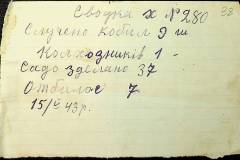 Сводка х №280
38
Случено кобил 9 ш
Колходників 1 -
Садо зделано 37
Отбилос 7
15/V 43 р.